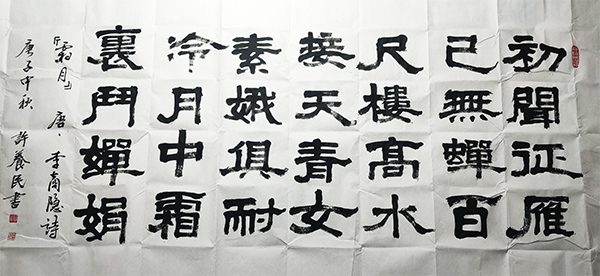 初聞征雁
已無蟬百
尺樓高水
接天青女
素娥俱耐
冷月中霜
裏鬥嬋娟
「霜月」唐、李商隱詩
庚子中秋 許養民書